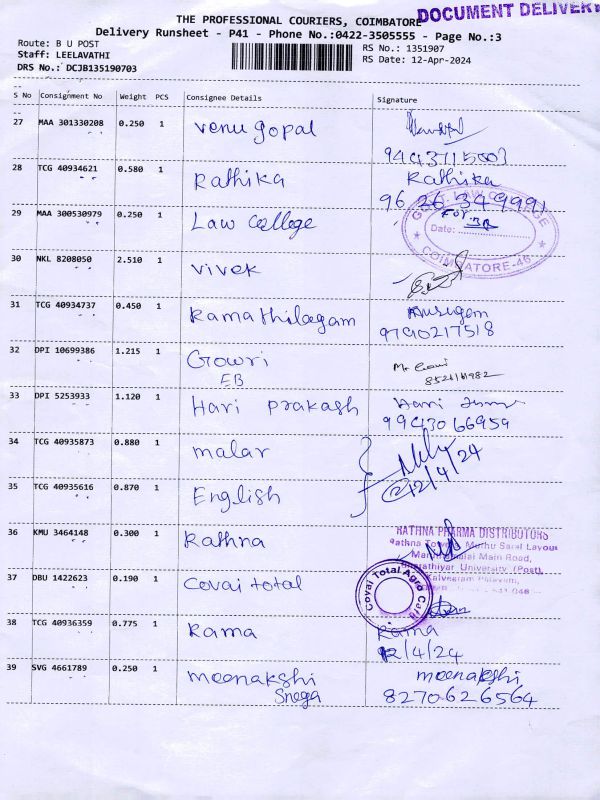 DOCUMENT DELIVERY
THE PROFESSIONAL COURIERS, COIMBATORE
Delivery Runsheet - P41 - Phone No.:0422-3505555 - Page No.:3
Route: B U POST
Staff: LEELAVATHI
DRS No.: DCJB135190703
RS No.: 1351907
RS Date: 12-Apr-2024
S No Consignment No Weight PCS Consignee Details Signature
27 MAA 301330208 0.250 1 Venu gopal
28 TCG 40934621 0.580 1 Rathika Rathika
96 26 349991
29 MAA 300530979 0.250 1 Law College
GOVT. LAW COLLEGE
Date:
COIMBATORE-46
30 NKL 8208050 2.510 1 Vivek
31 TCG 40934737 0.450 1 Ramathilagam Murugem
9790217518
32 DPI 10699386 1.215 1 Gowri
EB
33 DPI 5253933 1.120 1 Hari prakash Hari
9943066959
34 TCG 40935873 0.880 1 malar
12/4/24
35 TCG 40935616 0.870 1 English
36 KMU 3464148 0.300 1 Rathna
RATHNA PHARMA DISTRIBUTORS
Muthu Saral Layout
Main Road,
Bharathiyar University (Post),
37 DBU 1422623 0.190 1 Covai total
Covai Total Agro Care
38 TCG 40936359 0.775 1 Rama Rama
12/4/24
39 SVG 4661789 0.250 1 meenakshi meenakshi
Snega 8270626564